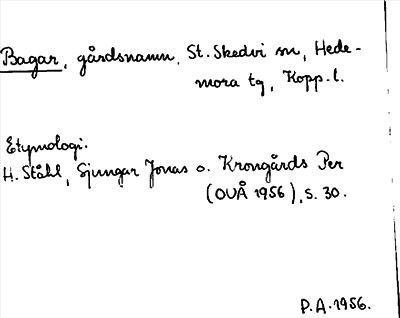 Bagar, gårdsnamn, St. Skedvi sn, Hede-
mora tg, Kopp. l.
Etymologi:
H. Ståhl, Sjungar Jonas o. Krongårds Per
(OUÅ 1956), s. 30.
P.A. 1956.